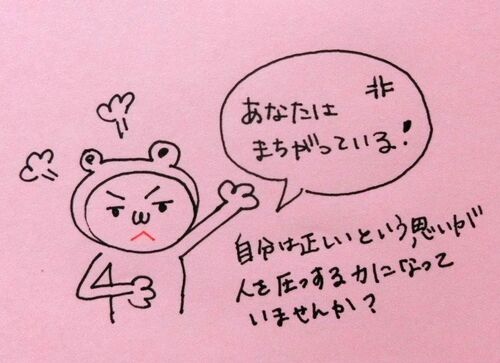 あなたは
まちがっている!
自分は正しいという思いが
人を圧っする力になって
いませんか?